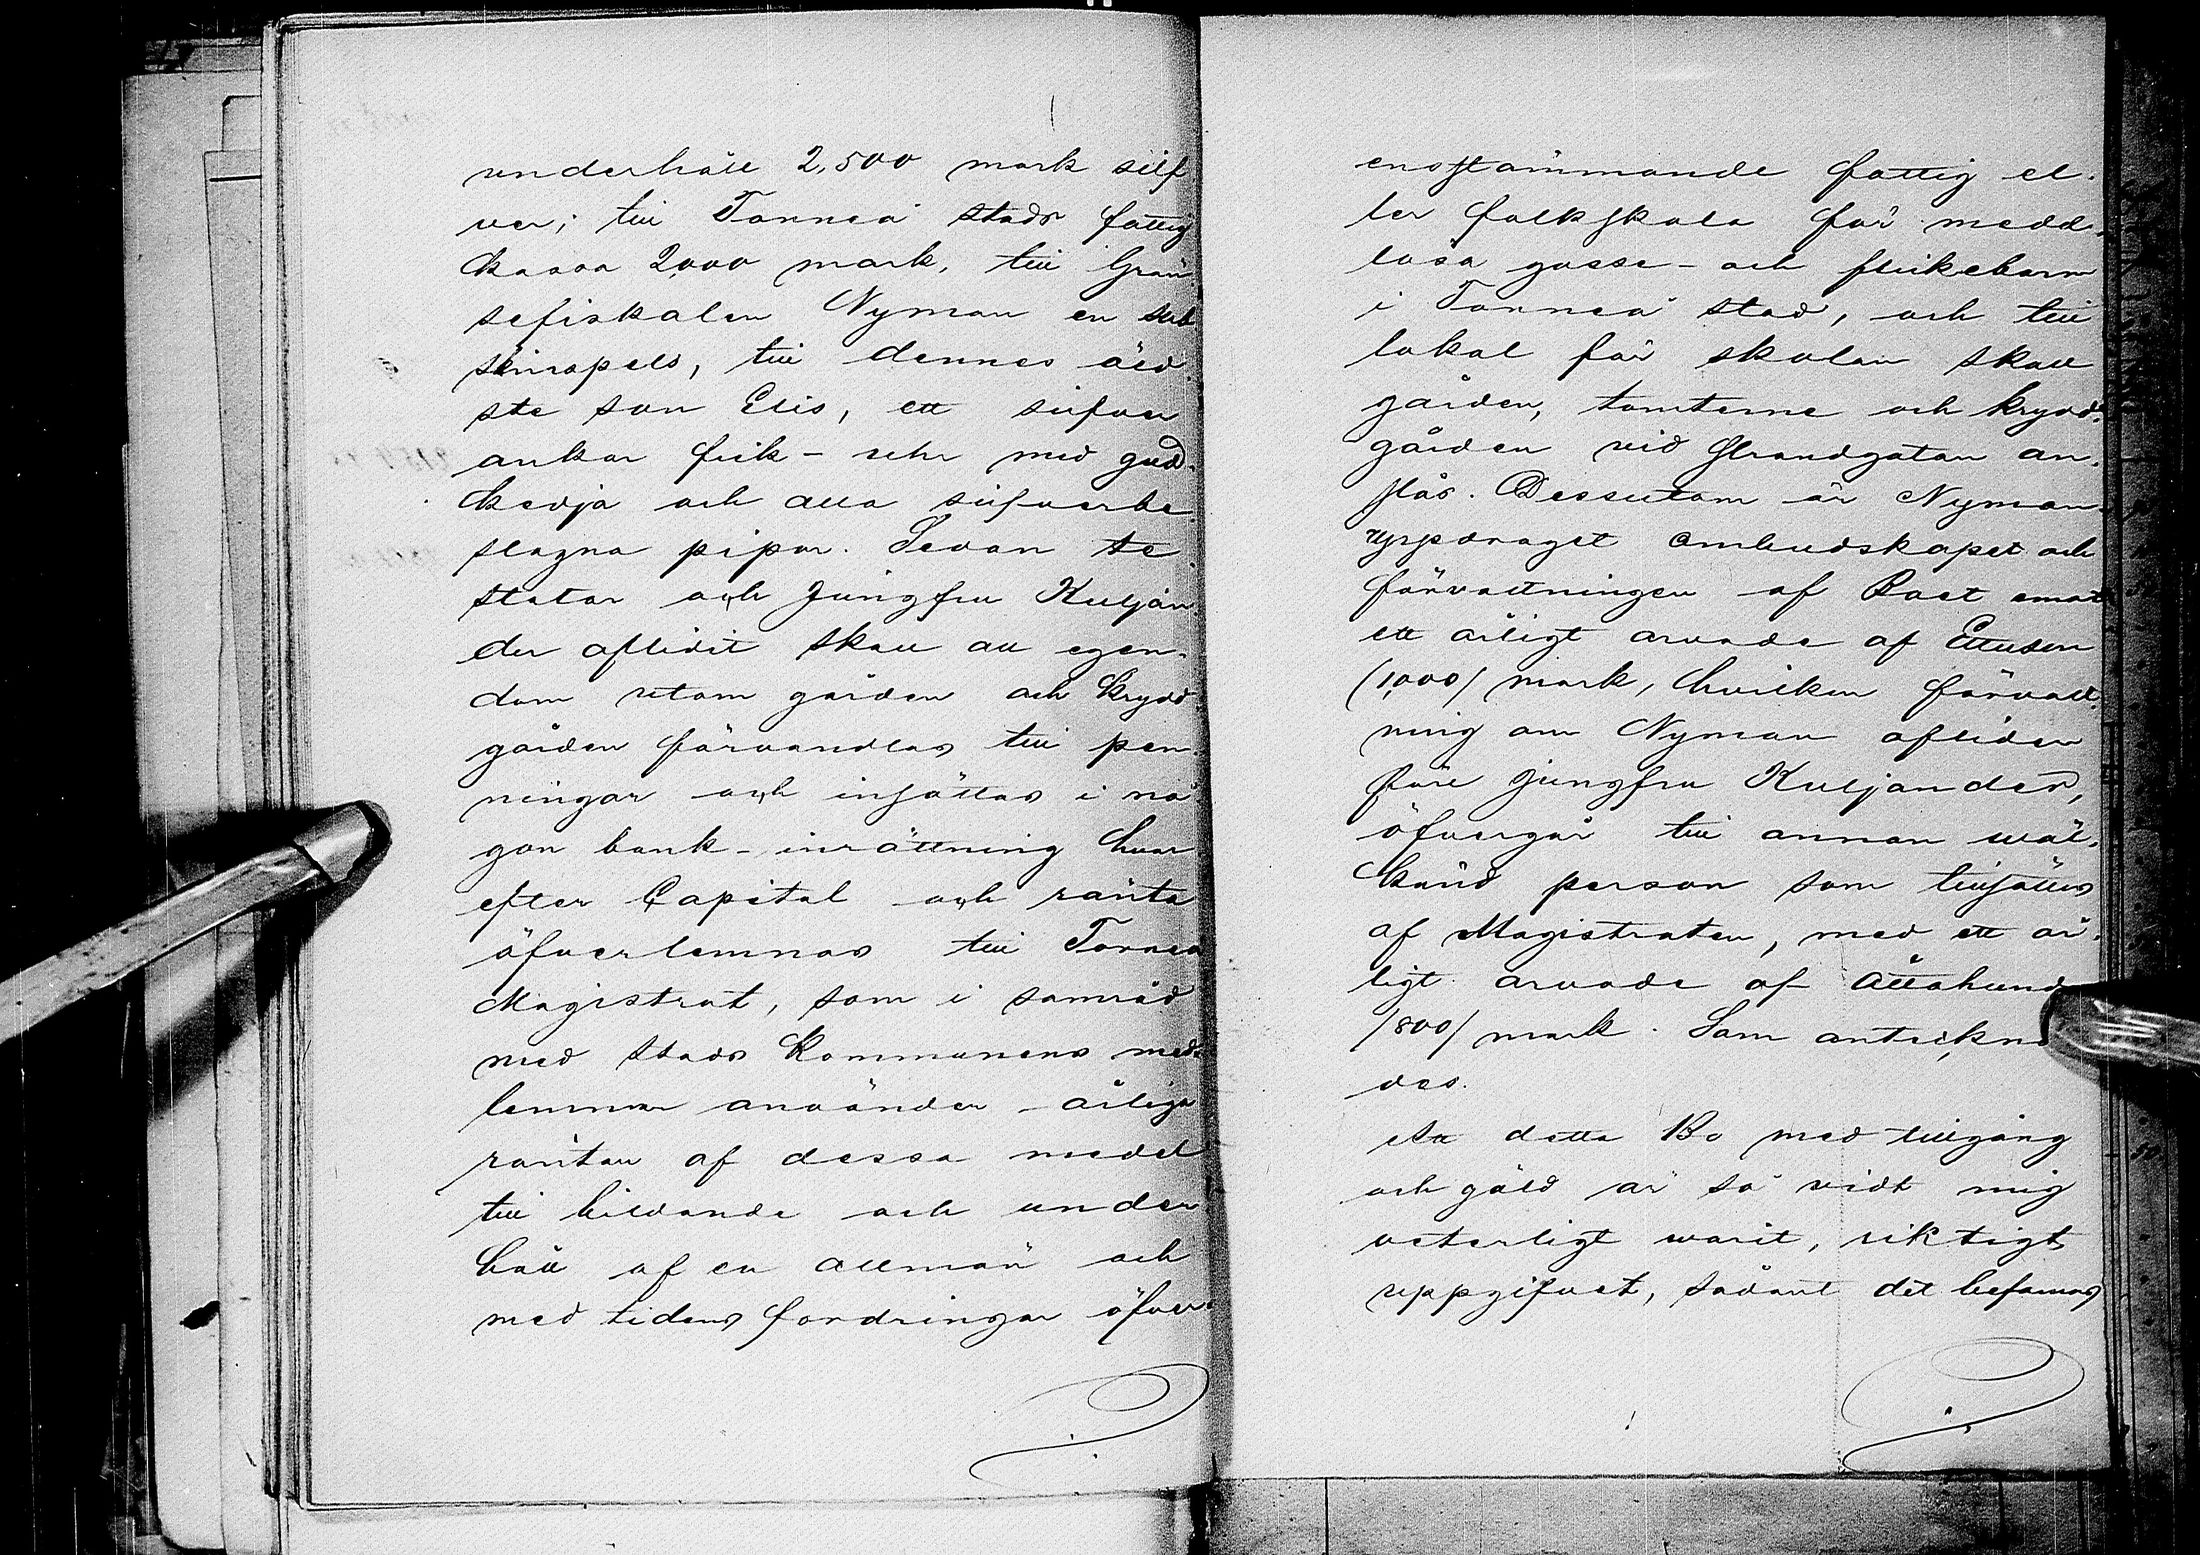 underhåll 2,500 mark silf
ver; till Torneå stads fattig
kassa 2,000 mark, till Grän
sefiskalen Nyman en sub
skinspels, till dennes äld.
ste son Elis, ett silfver
ankar fick-uhr med guld.
kedja och alla silfverbe.
slagna pipor. Sedan te.
stator och Jungfru Kuljan.
der aflidit skall all egen.
dom utom gården och krydd
gården förvandlas till pen.
ningar och insättas i nå
gon bank-inrättning hvar
efter Capital och ränta
öfverlemnas till Torneå
Magistrat, som i samråd
med stads Kommunens med.
lemmar använder årliga
räntan af dessa medel
till bildande och under
håll af en allmän och
med tidens fordringar öfver.
ensstämmande fattig el.
ler folkskola för medel.
lösa gosse- och flickebarn
i Torneå stad, och till
lokal för skolan skall
gården, tomterne och krydd.
gården vid Strandgatan an.
slås. Dessutom är Nyman
uppdraget ombudskapet och
förvaltningen af Boet emot
ett årligt arvode af Ettusen
/1,000/ mark, hvilken förvalt.
ning om Nyman afliden
före jungfru Kuljander,
öfvergår till annan wäl.
känd person som tillsättes
af Magistraten, med ett år.
ligt arvode af Åttahund
/800/ mark. Som anteckna
des.
Att detta Bo med tillgång
och gäld är så vidt mig
veterligt warit, riktigt
uppgifvet, sådant det befanns